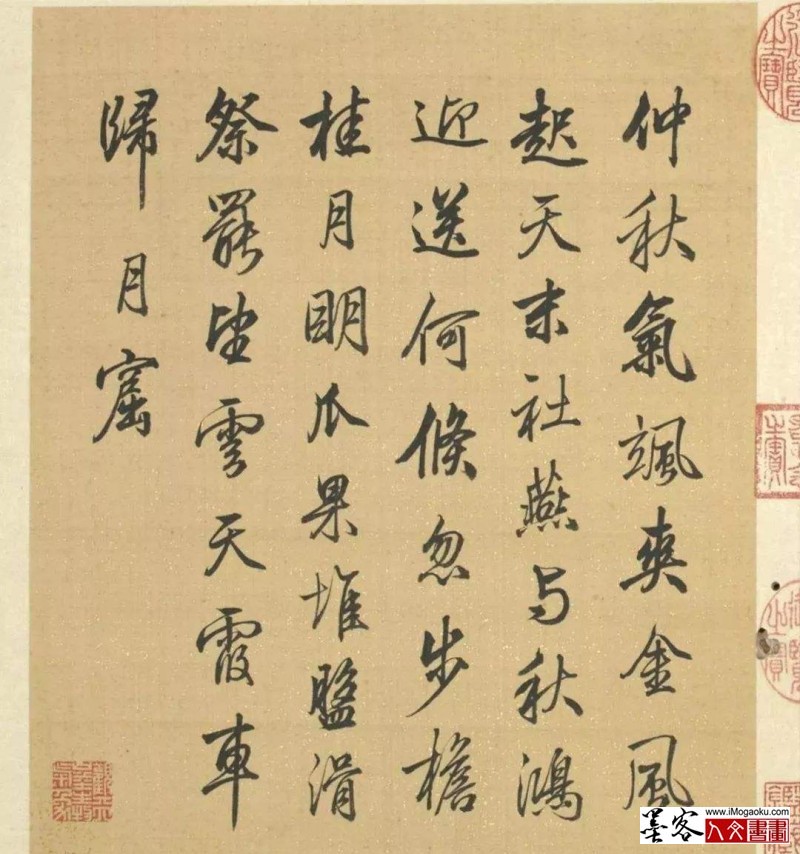 仲秋氣颯爽金風
起天末社燕与秋鴻
迎送何倏忽步檐
桂月明瓜果堆盤滑
祭罷望雲天霞車
歸月窟
www.iMogaoku.com
墨客人文書畫